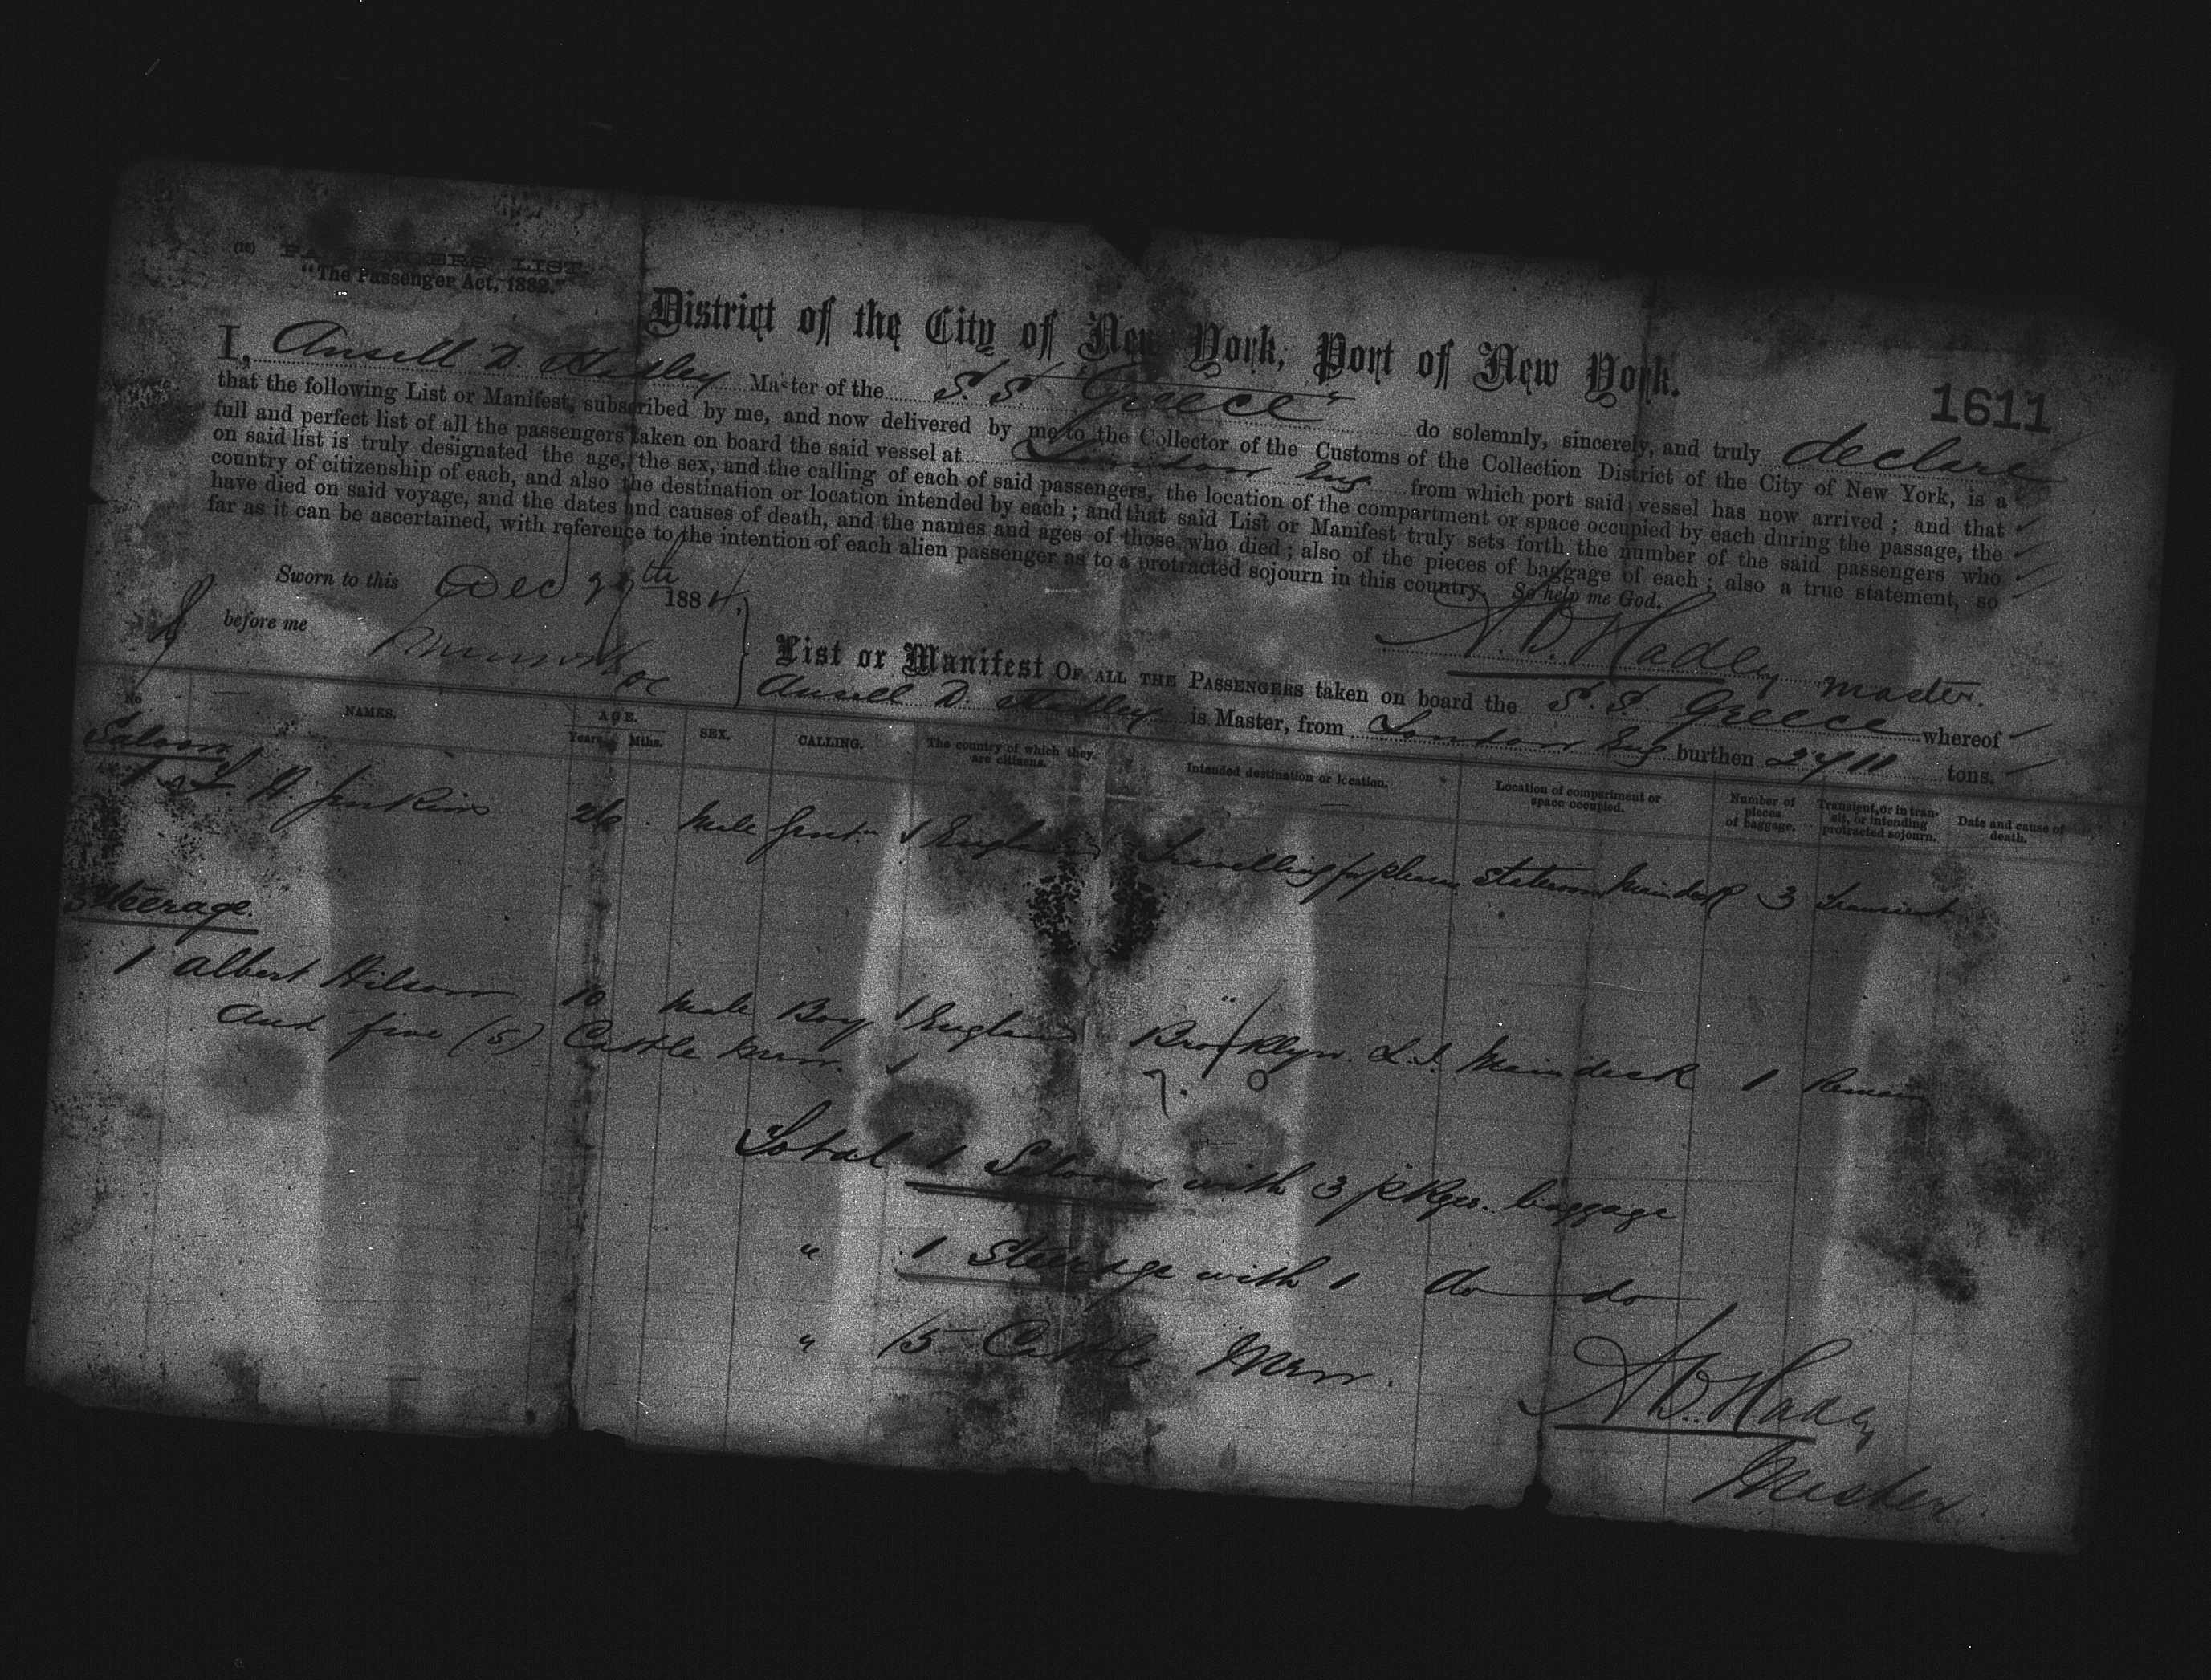 (18) PASSENGERS' LIST.
"The Passenger Act, 1882."
District of the City of New York, Port of New York.
1611
I, Ansell D. Hadley Master of the S. S. "Greece" do solemnly, sincerely, and truly declare
that the following List or Manifest, subscribed by me, and now delivered by me to the Collector of the Customs of the Collection District of the City of New York, is a
full and perfect list of all the passengers taken on board the said vessel at London Eng from which port said vessel has now arrived; and that
on said list is truly designated the age, the sex, and the calling of each of said passengers, the location of the compartment or space occupied by each during the passage, the
country of citizenship of each, and also the destination or location intended by each; and that said List or Manifest truly sets forth the number of the said passengers who
have died on said voyage, and the dates and causes of death, and the names and ages of those who died; also of the pieces of baggage of each; also a true statement, so
far as it can be ascertained, with reference to the intention of each alien passenger as to a protracted sojourn in this country. So help me God.
Sworn to this Dec 29th 1884,
A. D. Hadley master.
before me
List or Manifest OF ALL THE PASSENGERS taken on board the S. S. Greece whereof
Ansell D. Hadley is Master, from London Eng burthen 2711 tons.
No NAMES. AGE. Years. Mths. SEX. CALLING. The country of which they are citizens. Intended destination or location. Location of compartment or space occupied. Number of pieces of baggage. Transient, or in transit, or intending protracted sojourn. Date and cause of death.
Saloon
1 H. Jenkins 26 Male Gent. England Travelling for pleasure Stateroom Maindeck 3 Transient
Steerage.
1 Albert Wilson 10 Male Boy England Brooklyn. L.I. Maindeck 1 Remain
And five (5) Cattle men.
7. 0
Total 1 Saloon with 3 pkges. baggage
" 1 Steerage with 1 do do
" 5 Cattle Men.
A D. Hadley
Master